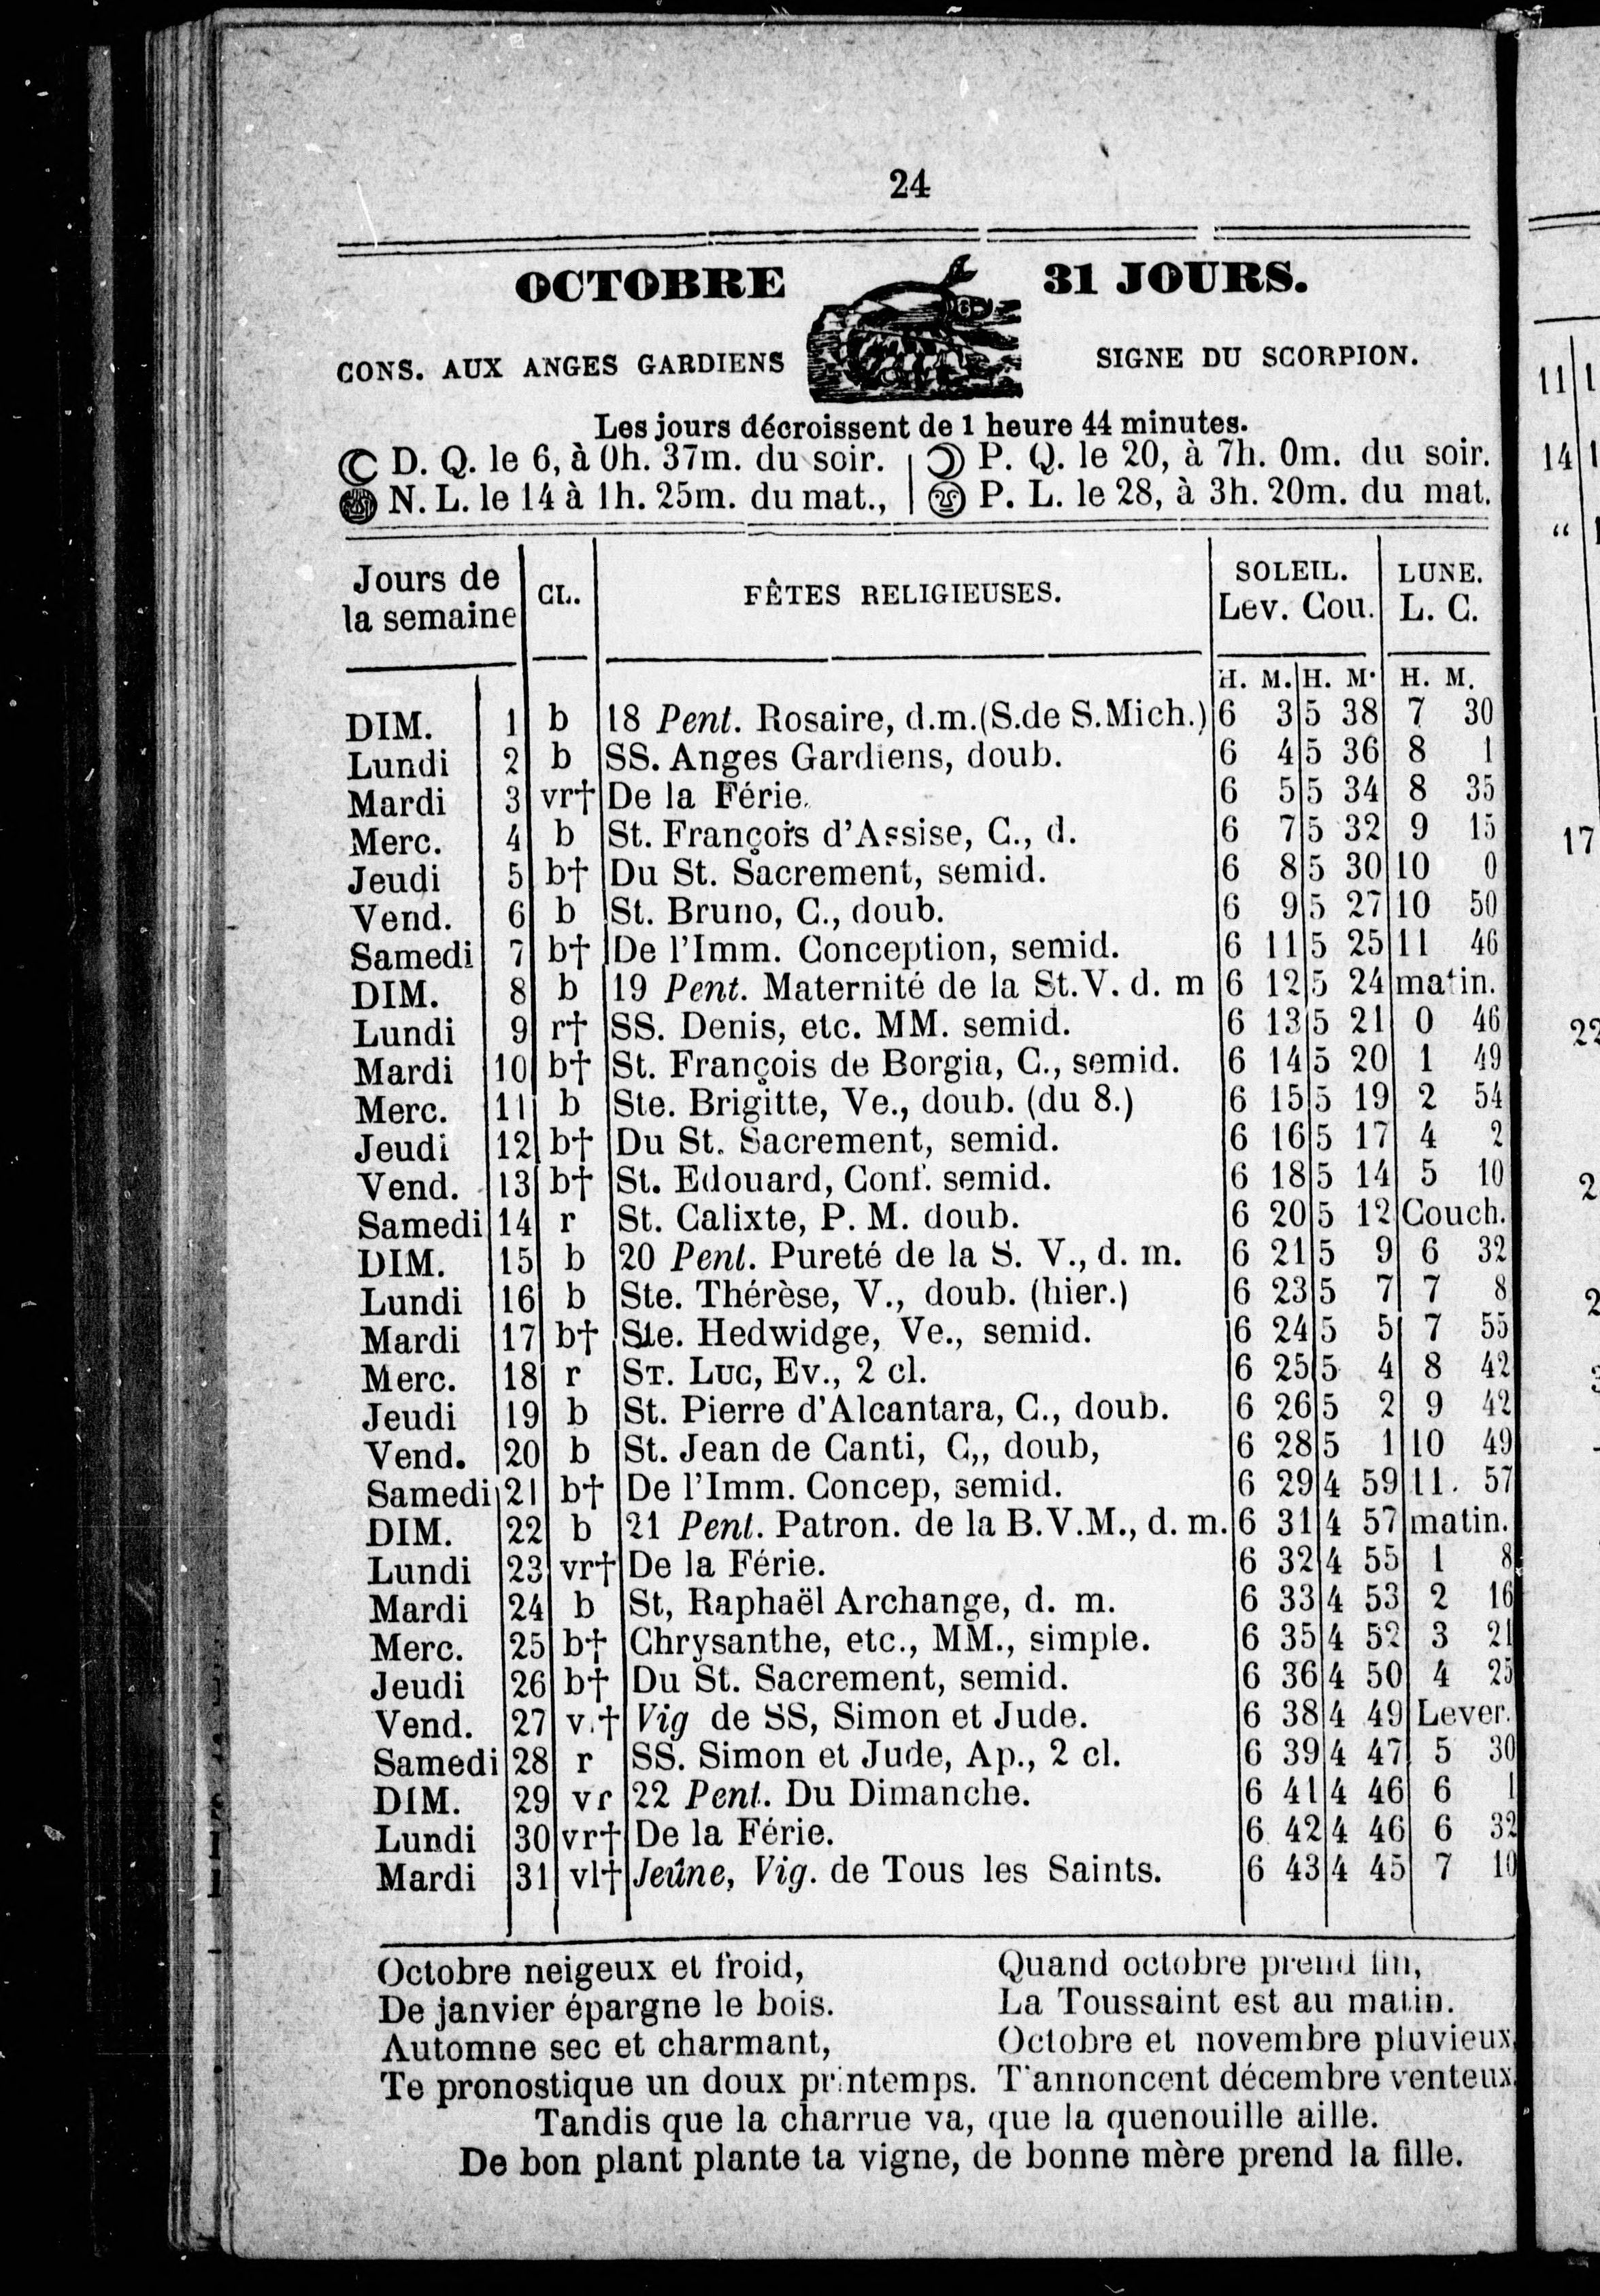 24
OCTOBRE 31 JOURS.
CONS. AUX ANGES GARDIENS SIGNE DU SCORPION.
Les jours décroissent de 1 heure 44 minutes.
D. Q. le 6, à 0h. 37m. du soir. P. Q. le 20, à 7h. 0m. du soir.
N. L. le 14 à 1h. 25m. du mat., P. L. le 28, à 3h. 20m. du mat.
Jours de la semaine CL. FÊTES RELIGIEUSES. SOLEIL. Lev. Cou. LUNE. L. C.
H. M. H. M. H. M.
DIM. 1 b 18 Pent. Rosaire, d.m.(S.de S.Mich.) 6 3 5 38 7 30
Lundi 2 b SS. Anges Gardiens, doub. 6 4 5 36 8 1
Mardi 3 vr† De la Férie. 6 5 5 34 8 35
Merc. 4 b St. François d'Assise, C., d. 6 7 5 32 9 15
Jeudi 5 b† Du St. Sacrement, semid. 6 8 5 30 10 0
Vend. 6 b St. Bruno, C., doub. 6 9 5 27 10 50
Samedi 7 b† De l'Imm. Conception, semid. 6 11 5 25 11 46
DIM. 8 b 19 Pent. Maternité de la St.V. d. m 6 12 5 24 matin.
Lundi 9 r† SS. Denis, etc. MM. semid. 6 13 5 21 0 46
Mardi 10 b† St. François de Borgia, C., semid. 6 14 5 20 1 49
Merc. 11 b Ste. Brigitte, Ve., doub. (du 8.) 6 15 5 19 2 54
Jeudi 12 b† Du St. Sacrement, semid. 6 16 5 17 4 2
Vend. 13 b† St. Edouard, Conf. semid. 6 18 5 14 5 10
Samedi 14 r St. Calixte, P. M. doub. 6 20 5 12 Couch.
DIM. 15 b 20 Pent. Pureté de la S. V., d. m. 6 21 5 9 6 32
Lundi 16 b Ste. Thérèse, V., doub. (hier.) 6 23 5 7 7 8
Mardi 17 b† Ste. Hedwidge, Ve., semid. 6 24 5 5 7 55
Merc. 18 r ST. LUC, EV., 2 cl. 6 25 5 4 8 42
Jeudi 19 b St. Pierre d'Alcantara, C., doub. 6 26 5 2 9 42
Vend. 20 b St. Jean de Canti, C,, doub, 6 28 5 1 10 49
Samedi 21 b† De l'Imm. Concep, semid. 6 29 4 59 11. 57
DIM. 22 b 21 Pent. Patron. de la B.V.M., d. m. 6 31 4 57 matin.
Lundi 23 vr† De la Férie. 6 32 4 55 1 8
Mardi 24 b St, Raphaël Archange, d. m. 6 33 4 53 2 16
Merc. 25 b† Chrysanthe, etc., MM., simple. 6 35 4 52 3 21
Jeudi 26 b† Du St. Sacrement, semid. 6 36 4 50 4 25
Vend. 27 v.† Vig de SS, Simon et Jude. 6 38 4 49 Lever.
Samedi 28 r SS. Simon et Jude, Ap., 2 cl. 6 39 4 47 5 30
DIM. 29 vr 22 Pent. Du Dimanche. 6 41 4 46 6 1
Lundi 30 vr† De la Férie. 6 42 4 46 6 32
Mardi 31 vl† Jeûne, Vig. de Tous les Saints. 6 43 4 45 7 10
Octobre neigeux et froid,
De janvier épargne le bois.
Automne sec et charmant,
Te pronostique un doux printemps.
Quand octobre prend fin,
La Toussaint est au matin.
Octobre et novembre pluvieux,
T'annoncent décembre venteux.
Tandis que la charrue va, que la quenouille aille.
De bon plant plante ta vigne, de bonne mère prend la fille.
11
14
"
17
22